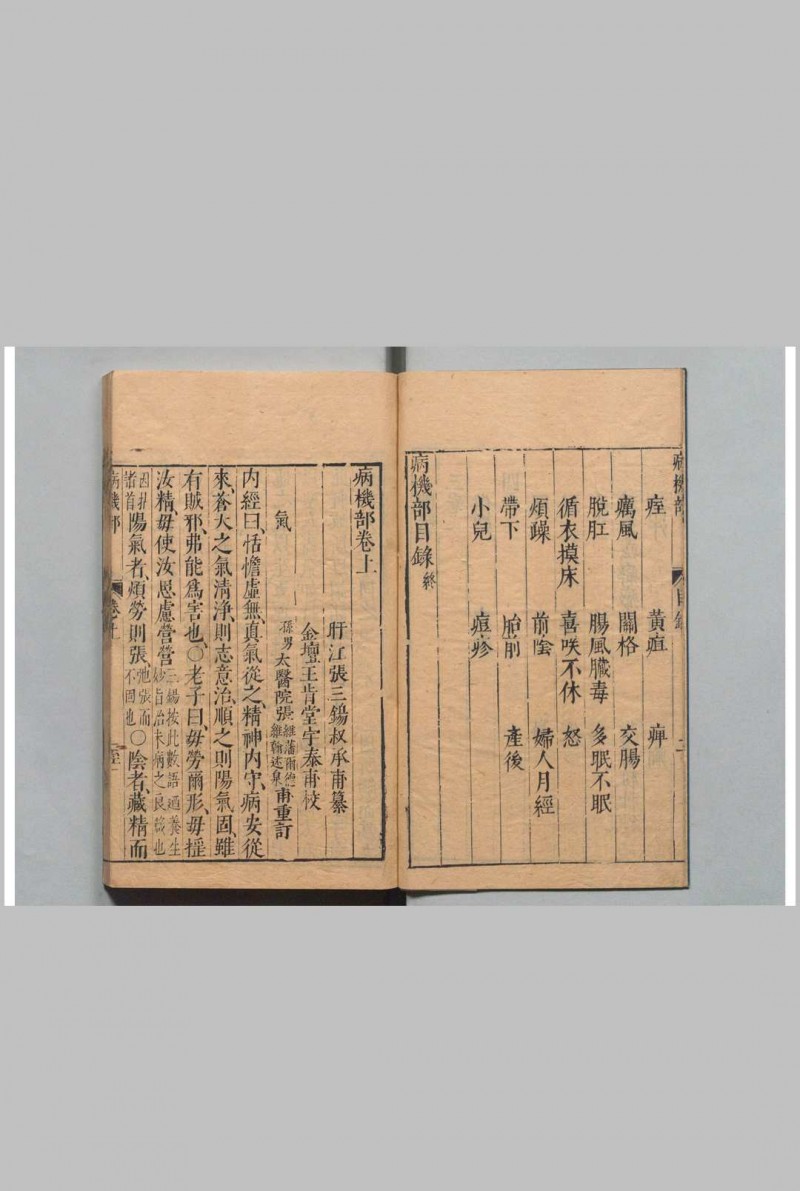 病機部 目錄 二
痓 黃疸 痺
癘風 關格 交腸
脫肛 腸風臟毒 多眠不眠
循衣摸床 喜咲不休 怒
煩躁 前陰 婦人月經
帶下 胎前 產後
小兒 痘疹
病機部目錄終
病機部卷上
盱江張三錫叔承甫纂
金壇王肯堂宇泰甫校
孫男太醫院張維藩爾德維翰述泉甫重訂
氣
内經曰、恬憺虛無、真氣從之、精神内守、病安從
來、蒼天之氣清淨、則志意治、順之則陽氣固、雖
有賊邪、弗能爲害也、〇老子曰、毋勞爾形、毋搖
汝精、毋使汝思慮營營三錫按此數語通養生妙旨治未病之良箴也
因并諸首陽氣者、煩勞則張、弛張而不固也〇陰者、藏精而
病機部 卷之上